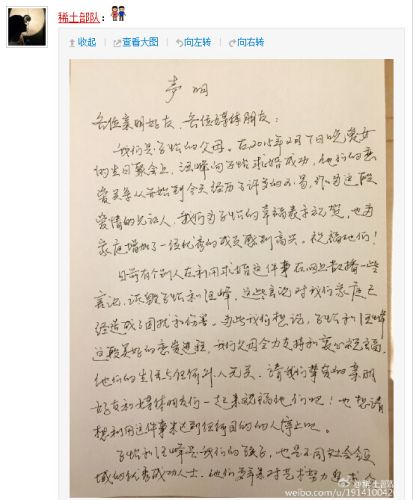 稀土部队：
收起 | 查看大图 | 向左转 | 向右转
声明
各位亲朋好友、各位媒体朋友：
我们是子怡的父母。在2015年2月7日晚爱女
的生日聚会上，汪峰向子怡求婚成功，他们的恋
爱关系从开始到今天经历了许多的不易，作为这段
爱情的见证人，我们为子怡的幸福表示祝贺，也为
家庭增加了一位优秀的成员感到高兴。祝福他们！
日前有个别人在利用求婚这件事在网上散播一些
言论，诋毁子怡和汪峰，这些言论对我们家庭已
经造成了困扰和伤害。为此我们想说，子怡和汪峰
这段美好的恋爱进程，我们全力支持和衷心祝福，
他们的生活与任何外人无关。请我们挚爱的亲朋
好友和媒体朋友们一起来祝福他们吧！也想请
想利用这件事来达到任何目的的人停止吧。
子怡和汪峰是我们的孩子，也是不同社会领
域的优秀成功人士，他们
@稀土部队
weibo.com/u/191410042